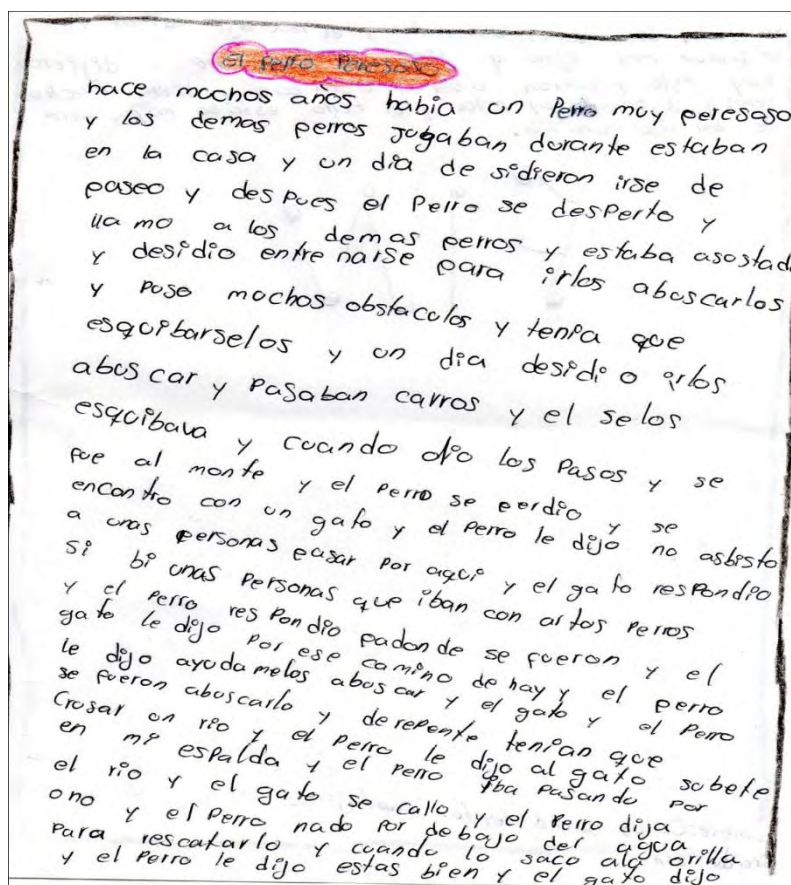 El Perro Peresoso
hace mochos años habia un Perro muy peresoso
y los demas perros Jugaban durante estaban
en la casa y un dia de sidieron irse de
paseo y des pues el Perro se desperto y
lla mo a los demas perros y estaba asostad
y desidio entre narse para irlos abuscarlos
y puso muchos obstaculos y tenia que
esquibarselos y un dia desidi o irlos
abus car y Pasaban carros y el selos
esquibava y cuando dio los Pasos y se
fue al monte y el Perro se perdio y se
encontro con un gato y el Perro le dijo no asbisto
a unas personas pasar por aqui y el ga to respondio
si bi unas Personas que iban con artos Perros
y el Perro res pon dio padonde se fueron y el
gato le dijo por ese camino de hay y el perro
le dijo ayuda melos abus car y el gato y el Perro
se fueron abuscarlo y de repente tenian que
Crusar un rio y el perro le dijo al gato subete
en mi espalda y el perro iba pasando por
el rio y el gato se callo y el Perro dija
ono y el Perro nado Por debajo del agua
Para rescatarlo y cuando lo saco ala orilla
y el Perro le dijo estas bien y el gato dijo